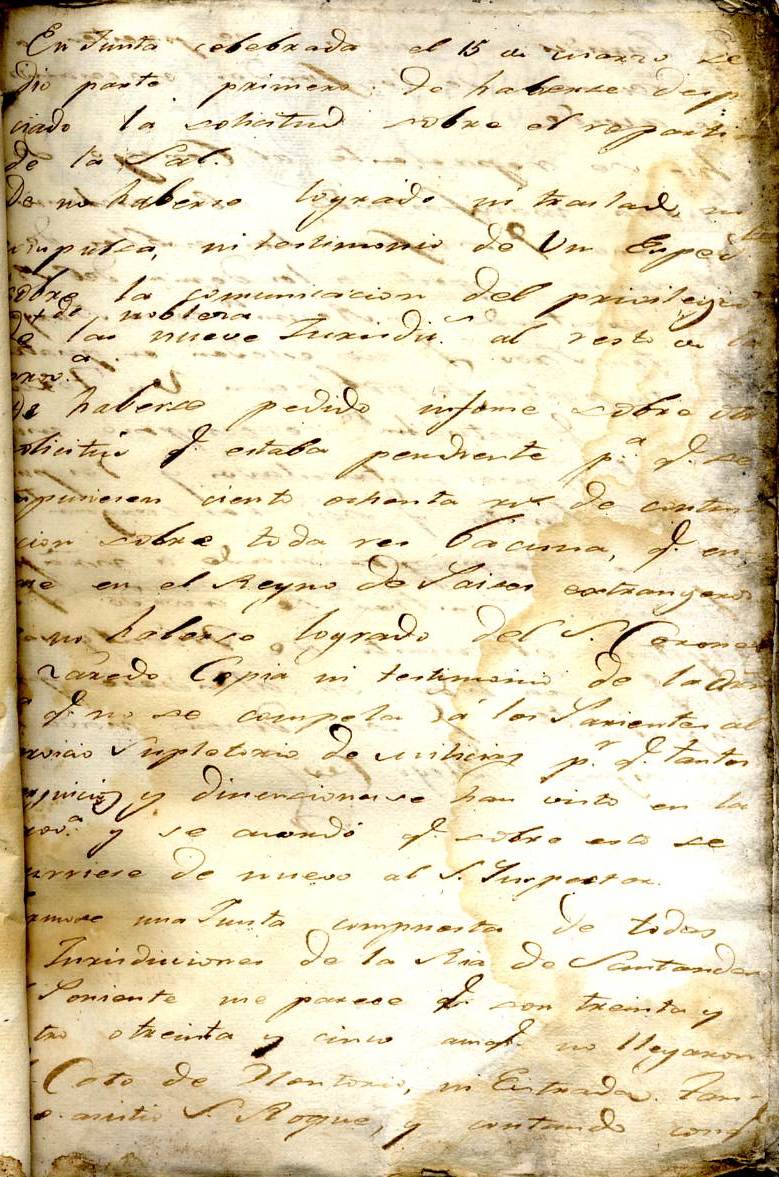 En Junta celebrada el 15 de marzo se
dio parte primero: de haberse desp
ciado la solicitud sobre el reparti
de la Sal.
De no haberse logrado ni traslad, ni
mpulsa, ni testimonio de Un Esped
sobre la comunicacion del privilegio
de nobleza
de las nueve Jurisdi.s al resto de la
prov.a
De haberse pedido informe sobre
olicitud q. estaba pendiente p.a q. se
mpusiesen ciento ochenta r.s de contri
cion sobre toda res bacuna, q. en
se en el Reyno de Paises extrangeros
no haberse logrado del S. Corone
Copia ni testimonio de la
q. no se compela á los Parientes al
rvicio Supletorio de milicias p.r q. tantos
y dicenciones se han visto en la
rov.a y se acordó q. sobre esto se
urriese de nuevo al S. Inspector.
rmose una Junta compuesta de todas
Jurisdiciones de la Ria de Santander
Poniente me parece q. son treinta y
tro o treinta y cinco aunq. no llegaron
Coto de ni Estrada. Tam-
o asistio S. Roque, y contando con